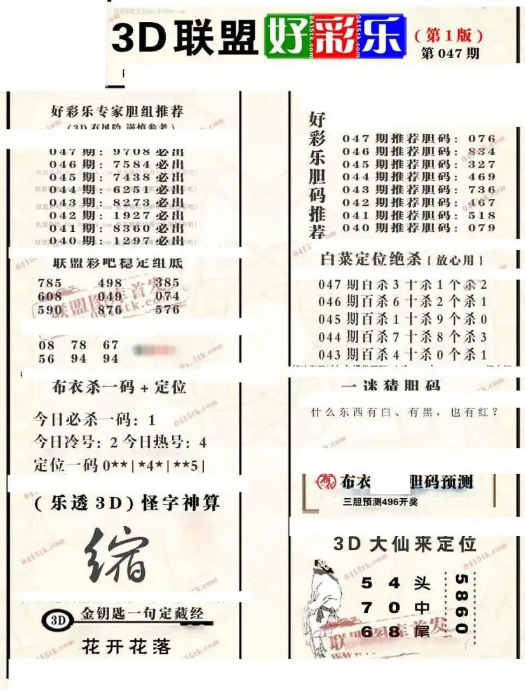 3D联盟 好彩乐
(第1版)
第047期
好彩乐专家胆组推荐
(3D有风险 谨慎参考)
047期: 9708必出
046期: 7584必出
045期: 7438必出
044期: 6251必出
043期: 8273必出
042期: 1927必出
041期: 8360必出
040期: 1297必出
联盟彩吧稳定组底
785 498 385
608 049 074
590 876 576
08 78 67
56 94 94
布衣杀一码+定位
今日必杀一码: 1
今日冷号: 2 今日热号: 4
定位一码 0**|*4*|**5|
(乐透3D)怪字神算
缩
3D 金钥匙一句定藏经
花开花落
好彩乐胆码推荐
047期推荐胆码: 076
046期推荐胆码: 834
045期推荐胆码: 327
044期推荐胆码: 469
043期推荐胆码: 736
042期推荐胆码: 467
041期推荐胆码: 518
040期推荐胆码: 079
白菜定位绝杀{放心用}
047期百杀3十杀1个杀2
046期百杀6十杀2个杀1
045期百杀1十杀9个杀0
044期百杀7十杀8个杀3
043期百杀4十杀0个杀1
一谜猜胆码
什么东西有白、有黑,也有红?
布衣 胆码预测
三胆预测496开奖
3D大仙来定位
54头
70中
68尾
5860
联盟图库首发
0415tk.com